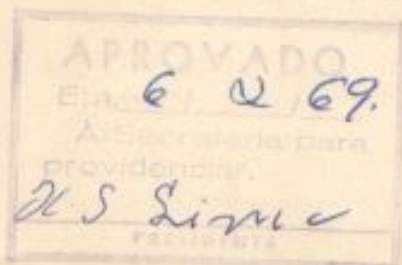 APROVADO
Em 6 / 2 / 69.
À Secretaria para
providenciar.
H S Lima
PRESIDENTE